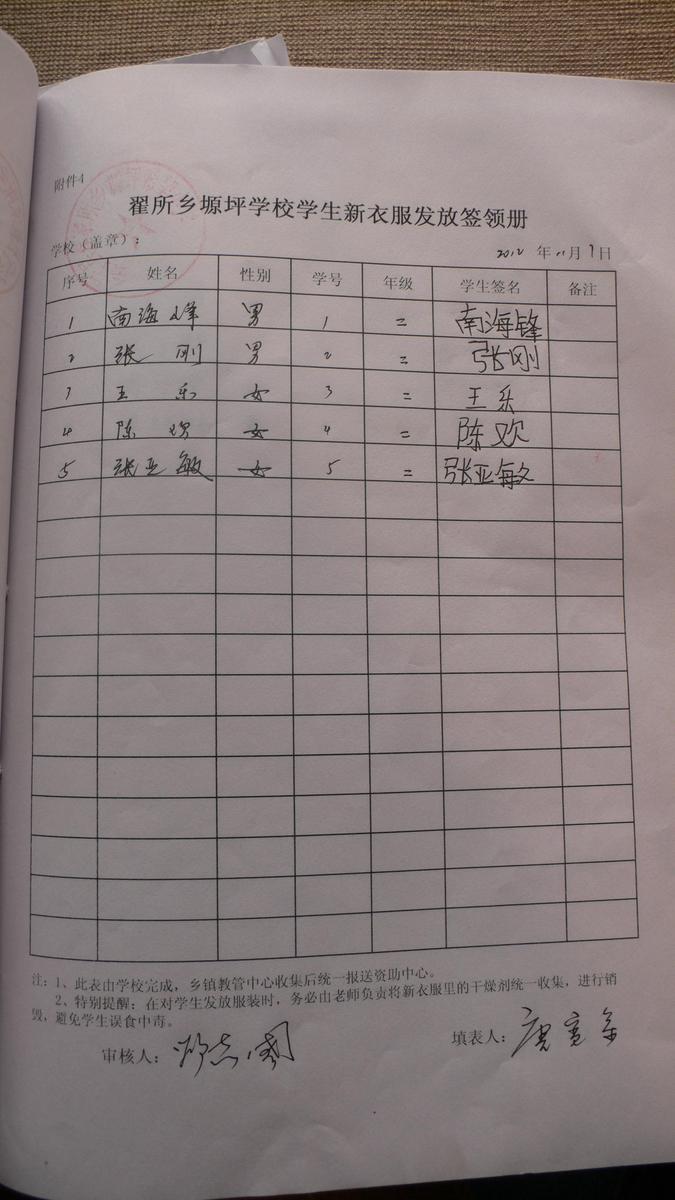 附件4
翟所乡塬坪学校学生新衣服发放签领册
学校（盖章）： 2012 年 11 月 9 日
序号 姓名 性别 学号 年级 学生签名 备注
1 南海峰 男 1 二 南海锋
2 张刚 男 2 二 张刚
3 王乐 女 3 二 王乐
4 陈欢 女 4 二 陈欢
5 张亚敏 女 5 二 张亚敏
注：1、此表由学校完成，乡镇教管中心收集后统一报送资助中心。
2、特别提醒：在对学生发放服装时，务必由老师负责将新衣服里的干燥剂统一收集，进行销
毁，避免学生误食中毒。
审核人： 填表人：